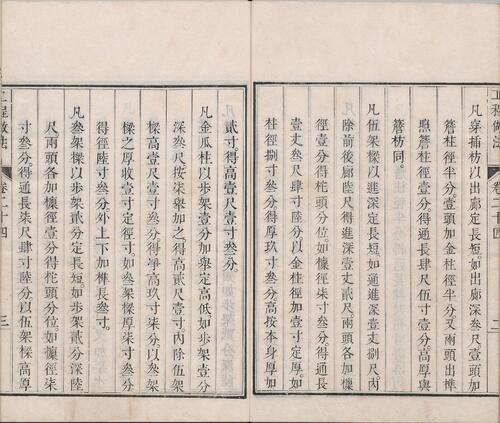 工程做法
卷二十四
二
凡穿插枋以出廊定長短如出廊深叁尺壹頭加
簷柱徑半分壹頭加金柱徑半分又兩頭出榫
照簷柱徑壹分得通長肆尺伍寸壹分高厚與
簷枋同
凡伍架樑以進深定長短如通進深壹丈捌尺內
除前後廊陸尺得進深壹丈貳尺兩頭各加檁
徑壹分得柁頭分位如檁徑柒寸叁分得通長
壹丈叁尺肆寸陸分以金柱徑加壹寸定厚如
柱徑捌寸叁分得厚玖寸叁分高按本身厚加
貳寸得高壹尺壹寸叁分
凡金瓜柱以步架壹分加舉定高低如步架壹分
深叁尺按柒舉加之得高貳尺壹寸內除伍架
樑高壹尺壹寸叁分得凈高玖寸柒分以叁架
樑之厚收壹寸定徑寸如叁架樑厚柒寸叁分
得徑陸寸叁分外上下加榫長叁寸
凡叁架樑以步架貳分定長短如步架貳分深陸
尺兩頭各加檁徑壹分得柁頭分位如檁徑柒
寸叁分得通長柒尺肆寸陸分以伍架樑高厚
工程做法
卷二十四
三